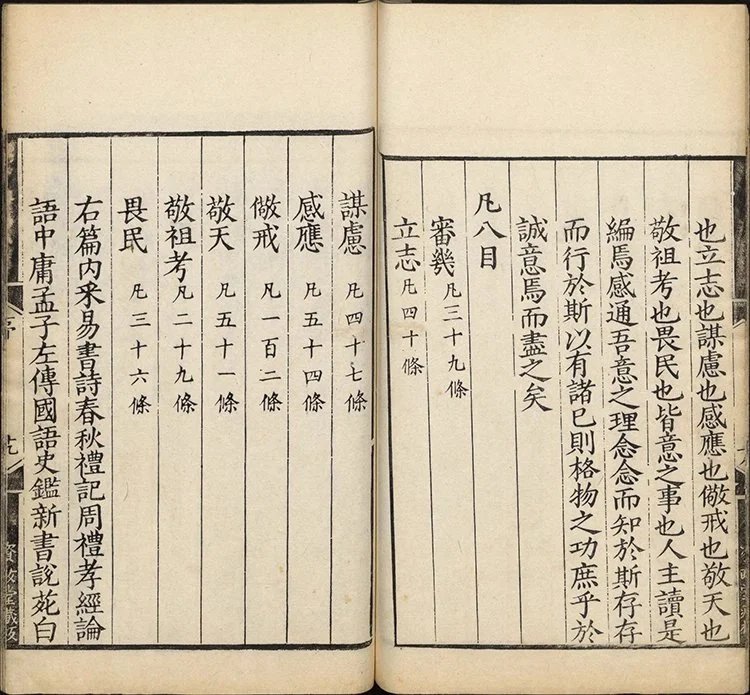 也立志也謀慮也感應也儆戒也敬天也
敬祖考也畏民也皆意之事也人主讀是
編焉感通吾意之理念念而知於斯存存
而行於斯以有諸已則格物之功庶乎於
誠意焉而盡之矣
凡八目
審幾凡三十九條
立志凡四十條
謀慮凡四十七條
感應凡五十四條
儆戒凡一百二條
敬天凡五十一條
敬祖考凡二十九條
畏民凡三十六條
右篇內采易書詩春秋禮記周禮孝經論
語中庸孟子左傳國語史鑑新書說苑白
序
資政堂藏板